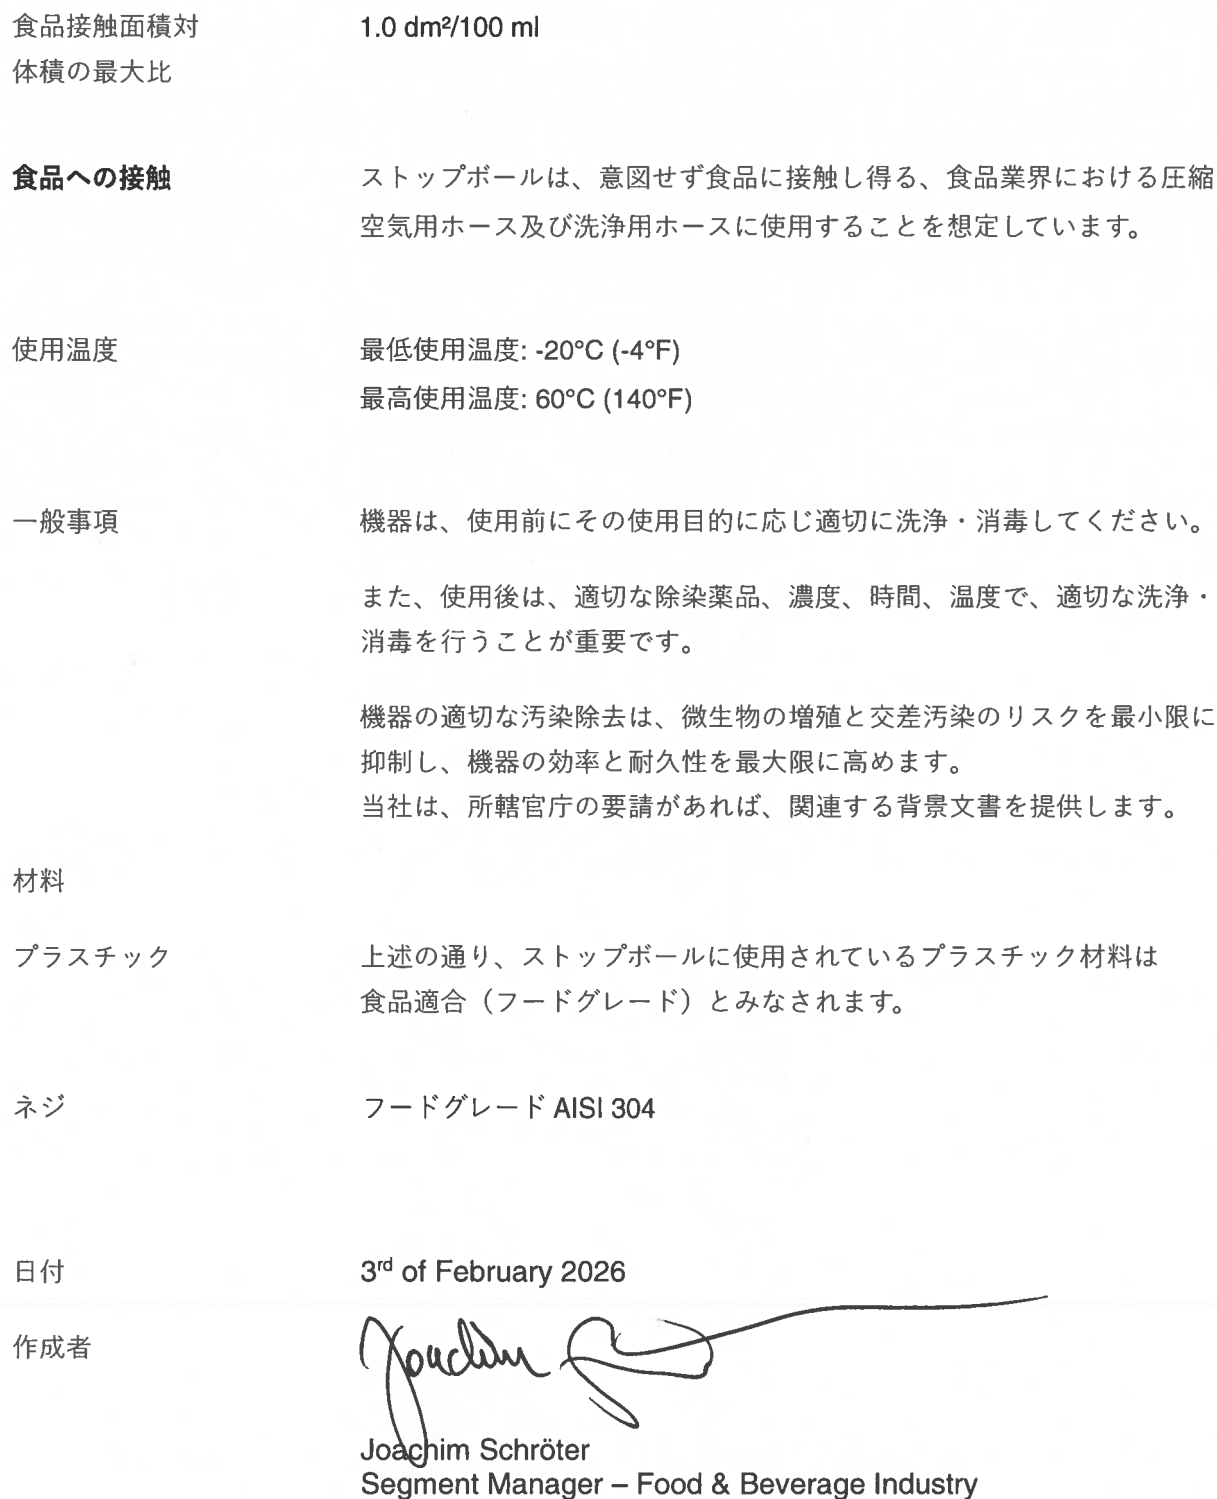 食品接触面積対 1.0 dm²/100 ml
体積の最大比
食品への接触 ストップボールは、意図せず食品に接触し得る、食品業界における圧縮
空気用ホース及び洗浄用ホースに使用することを想定しています。
使用温度 最低使用温度: -20°C (-4°F)
最高使用温度: 60°C (140°F)
一般事項 機器は、使用前にその使用目的に応じ適切に洗浄・消毒してください。
また、使用後は、適切な除染薬品、濃度、時間、温度で、適切な洗浄・
消毒を行うことが重要です。
機器の適切な汚染除去は、微生物の増殖と交差汚染のリスクを最小限に
抑制し、機器の効率と耐久性を最大限に高めます。
当社は、所轄官庁の要請があれば、関連する背景文書を提供します。
材料
プラスチック 上述の通り、ストップボールに使用されているプラスチック材料は
食品適合（フードグレード）とみなされます。
ネジ フードグレード AISI 304
日付 3rd of February 2026
作成者 Joachim
Joachim Schröter
Segment Manager – Food & Beverage Industry